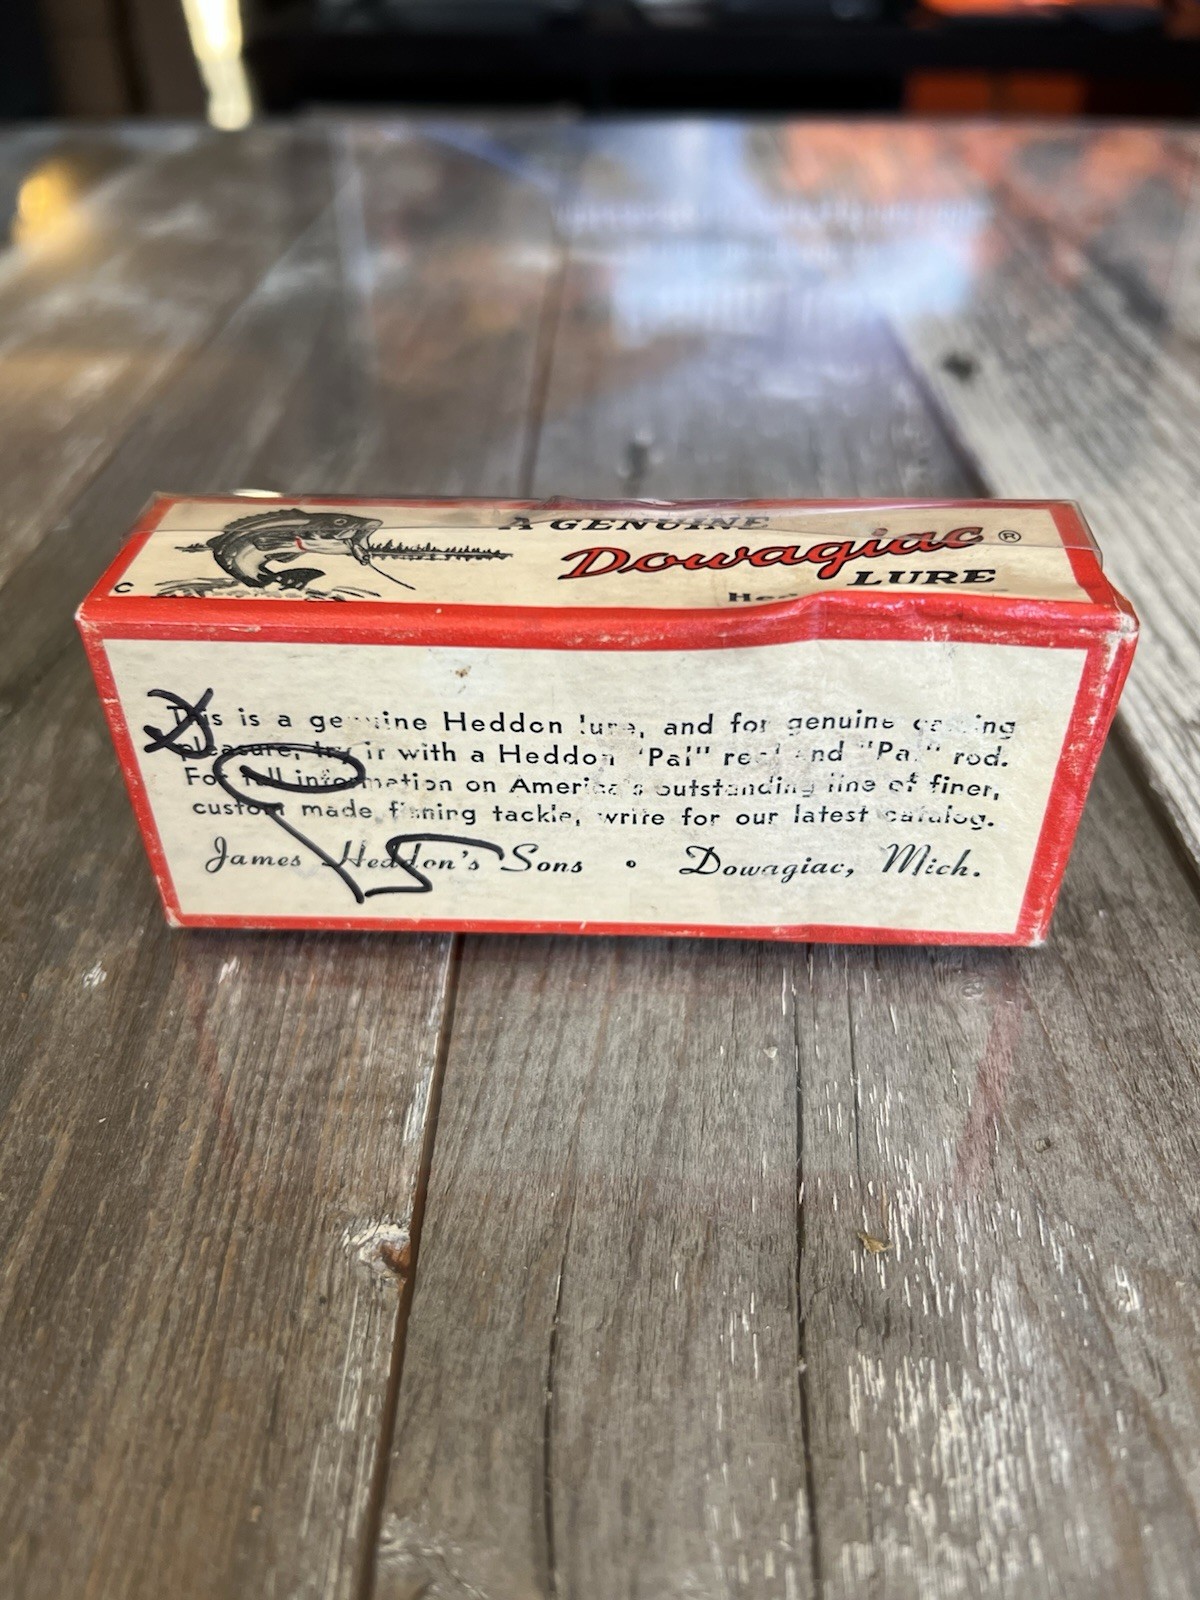 A GENUINE
Dowagiac ®
LURE
C
This is a genuine Heddon lure, and for genuine casting
pleasure, try it with a Heddon "Pal" reel and "Pal" rod.
For full information on America's outstanding line of finer,
custom made fishing tackle, write for our latest catalog.
James Heddon's Sons • Dowagiac, Mich.